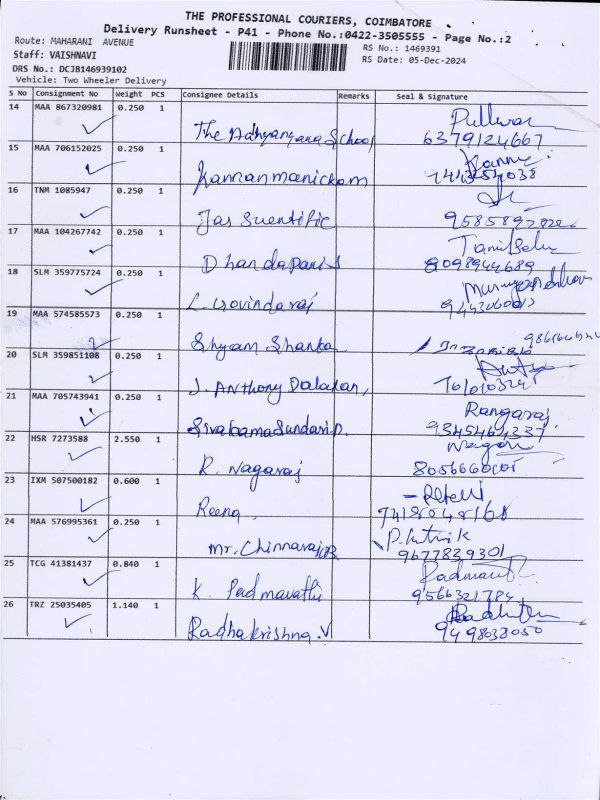 THE PROFESSIONAL COURIERS, COIMBATORE
Delivery Runsheet - P41 - Phone No.:0422-3505555 - Page No.:2
Route: MAHARANI AVENUE
RS No.: 1469391
Staff: VAISHNAVI
RS Date: 05-Dec-2024
DRS No.: DCJB146939102
Vehicle: Two Wheeler Delivery
S No Consignment No Weight PCS Consignee Details Remarks Seal & Signature
14 MAA 867320981 0.250 1
The Adhyanyana School
6379124667
15 MAA 706152025 0.250 1
Kannan manickam
16 TNM 1085947 0.250 1
Jas Scientific
17 MAA 104267742 0.250 1
Tamil Selvi
Dhandapani S
8098944689
18 SLM 359775724 0.250 1
L. Govindaraj
19 MAA 574585573 0.250 1
Shyam Shankar
20 SLM 359851108 0.250 1
J. Anthony
21 MAA 705743941 0.250 1
Rangaraj
Sivabama Sundari P.
9345464337
22 HSR 7273588 2.550 1
R. Nagaraj
23 IXM 507500182 0.600 1
Reena
24 MAA 576995361 0.250 1
Mr. Chinnaraj
9677839301
25 TCG 41381437 0.840 1
K. Padmavathi
9566321784
26 TRZ 25035405 1.140 1
Radhakrishna.V
9498038050